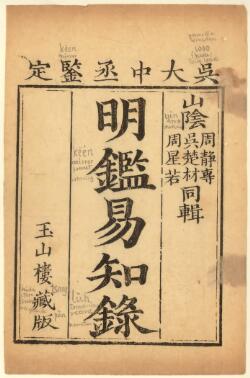 吳大中丞鑒定
山陰
周靜專
吳楚材
周星若
同輯
明鑑易知錄
玉山樓藏版
kēen
mirror
kēen
mirror
yin
lūh